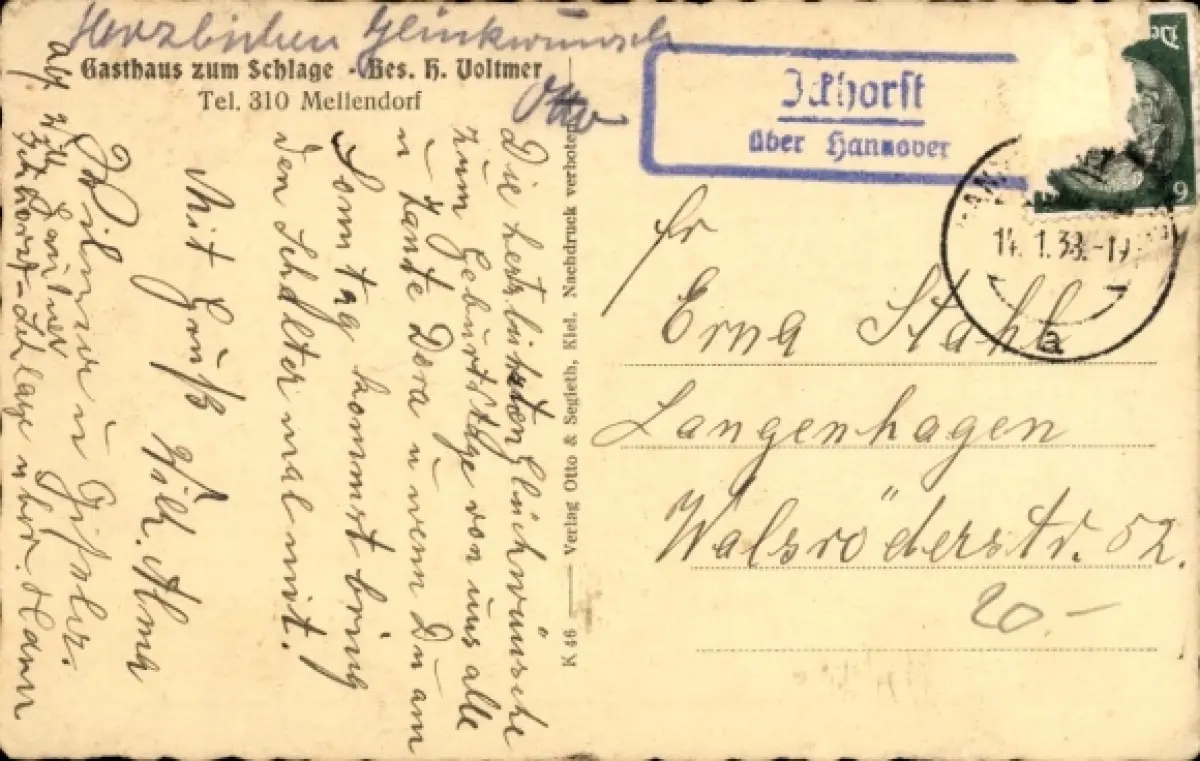 Herzlichen Glückwunsch
Otto
Gasthaus zum Schlage - Bes. H. Voltmer
Tel. 310 Mellendorf
Die herzlichsten Glückwünsche
zum Geburtstage von uns alle
u Tante Dora u wenn Du am
Sonntag kommst bring
den Schalter mal mit.
Mit Gruß Wilh. Alma
Wilma u
Abs
Ickhorst-Schlage über Hann
K 46 Verlag Otto & Segieth, Kiel. Nachdruck verboten
Ickhorst
über Hannover
14.1.38.-19
a
fr
Erna Stahl
Langenhagen
Walsröderstr. 52.
20.-